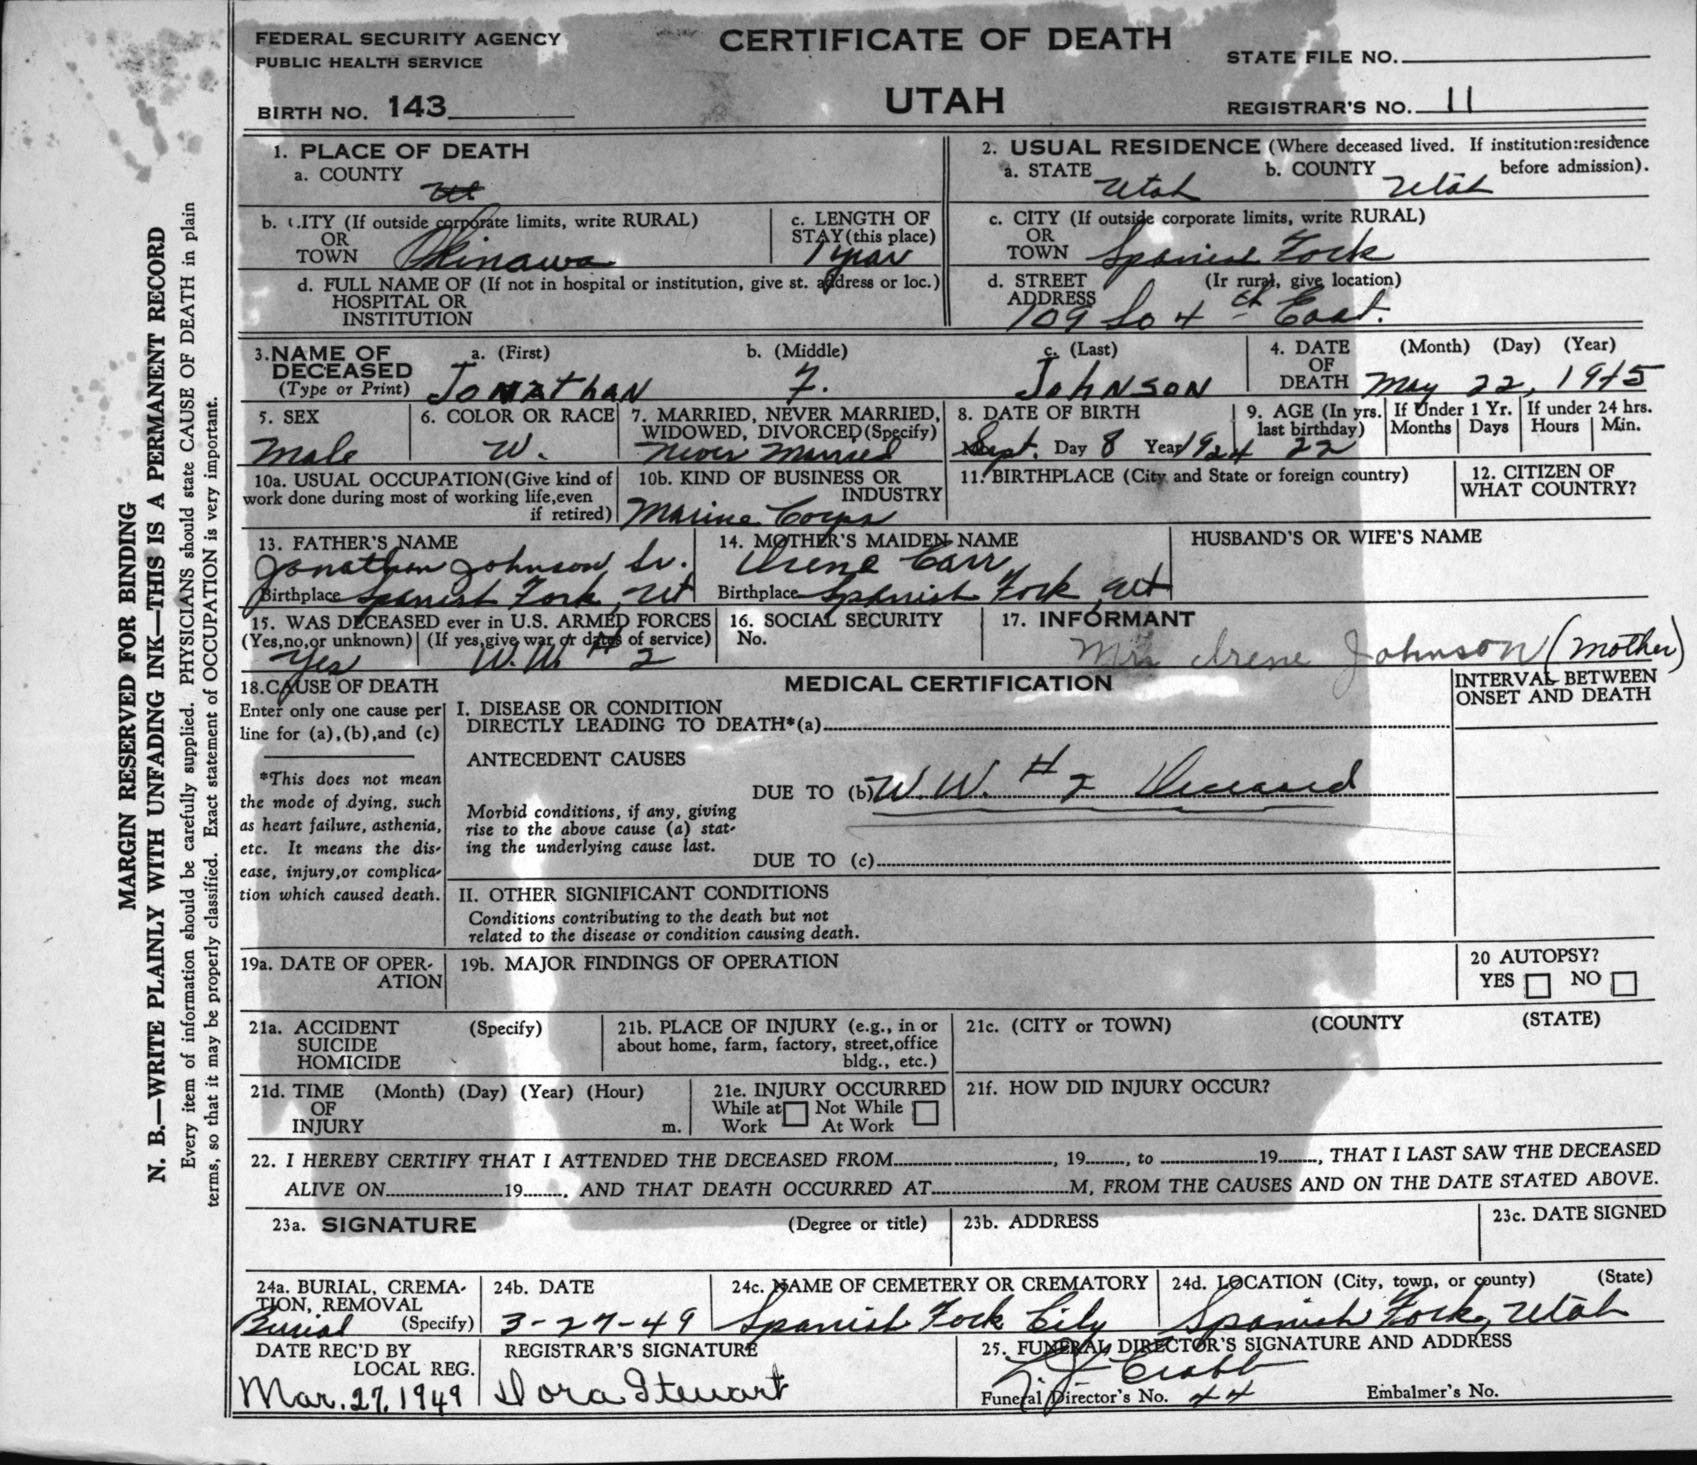 FEDERAL SECURITY AGENCY
PUBLIC HEALTH SERVICE
CERTIFICATE OF DEATH
STATE FILE NO.
BIRTH NO. 143
UTAH
REGISTRAR'S NO. 11
MARGIN RESERVED FOR BINDING
N. B.—WRITE PLAINLY WITH UNFADING INK—THIS IS A PERMANENT RECORD
Every item of information should be carefully supplied. PHYSICIANS should state CAUSE OF DEATH in plain
terms, so that it may be properly classified. Exact statement of OCCUPATION is very important.
1. PLACE OF DEATH
a. COUNTY
b. CITY (If outside corporate limits, write RURAL)
OR
TOWN Okinawa
c. LENGTH OF
STAY (this place)
1 year
d. FULL NAME OF (If not in hospital or institution, give st. address or loc.)
HOSPITAL OR
INSTITUTION
2. USUAL RESIDENCE (Where deceased lived. If institution:residence
before admission).
a. STATE Utah b. COUNTY Utah
c. CITY (If outside corporate limits, write RURAL)
OR
TOWN Spanish Fork
d. STREET (Ir rural, give location)
ADDRESS
709 So 4th East.
3. NAME OF
DECEASED
(Type or Print)
a. (First) b. (Middle) c. (Last)
Jonathan F. Johnson
4. DATE (Month) (Day) (Year)
OF
DEATH May 22, 1945
5. SEX
Male
6. COLOR OR RACE
W.
7. MARRIED, NEVER MARRIED,
WIDOWED, DIVORCED (Specify)
Never Married
8. DATE OF BIRTH
Sept. Day 8 Year 1924
9. AGE (In yrs.
last birthday)
22
If Under 1 Yr.
Months Days
If under 24 hrs.
Hours Min.
10a. USUAL OCCUPATION (Give kind of
work done during most of working life,even
if retired)
10b. KIND OF BUSINESS OR
INDUSTRY
Marine Corps
11. BIRTHPLACE (City and State or foreign country)
12. CITIZEN OF
WHAT COUNTRY?
13. FATHER'S NAME
Jonathan Johnson, Sr.
Birthplace Spanish Fork, Ut
14. MOTHER'S MAIDEN NAME
Irene Carr
Birthplace Spanish Fork, Ut
HUSBAND'S OR WIFE'S NAME
15. WAS DECEASED ever in U.S. ARMED FORCES
(Yes,no,or unknown) (If yes,give war or dates of service)
Yes W.W. #2
16. SOCIAL SECURITY
No.
17. INFORMANT
Mrs Irene Johnson (Mother)
18. CAUSE OF DEATH
Enter only one cause per
line for (a),(b),and (c)
*This does not mean
the mode of dying, such
as heart failure, asthenia,
etc. It means the dis-
ease, injury,or complica-
tion which caused death.
MEDICAL CERTIFICATION
I. DISEASE OR CONDITION
DIRECTLY LEADING TO DEATH*(a)
ANTECEDENT CAUSES
DUE TO (b) W.W. #2 Deceased
Morbid conditions, if any, giving
rise to the above cause (a) stat-
ing the underlying cause last.
DUE TO (c)
II. OTHER SIGNIFICANT CONDITIONS
Conditions contributing to the death but not
related to the disease or condition causing death.
INTERVAL BETWEEN
ONSET AND DEATH
19a. DATE OF OPER-
ATION
19b. MAJOR FINDINGS OF OPERATION
20 AUTOPSY?
YES NO
21a. ACCIDENT (Specify)
SUICIDE
HOMICIDE
21b. PLACE OF INJURY (e.g., in or
about home, farm, factory, street,office
bldg., etc.)
21c. (CITY or TOWN) (COUNTY (STATE)
21d. TIME (Month) (Day) (Year) (Hour)
OF
INJURY m.
21e. INJURY OCCURRED
While at Not While
Work At Work
21f. HOW DID INJURY OCCUR?
22. I HEREBY CERTIFY THAT I ATTENDED THE DECEASED FROM, 19, to 19, THAT I LAST SAW THE DECEASED
ALIVE ON 19, AND THAT DEATH OCCURRED AT M, FROM THE CAUSES AND ON THE DATE STATED ABOVE.
23a. SIGNATURE (Degree or title)
23b. ADDRESS
23c. DATE SIGNED
24a. BURIAL, CREMA-
TION, REMOVAL
Burial (Specify)
24b. DATE
3-27-49
24c. NAME OF CEMETERY OR CREMATORY
Spanish Fork City
24d. LOCATION (City, town, or county) (State)
Spanish Fork, Utah
DATE REC'D BY
LOCAL REG.
Mar. 27, 1949
REGISTRAR'S SIGNATURE
Dora Stewart
25. FUNERAL DIRECTOR'S SIGNATURE AND ADDRESS
Crabb
Funeral Director's No. 44 Embalmer's No.